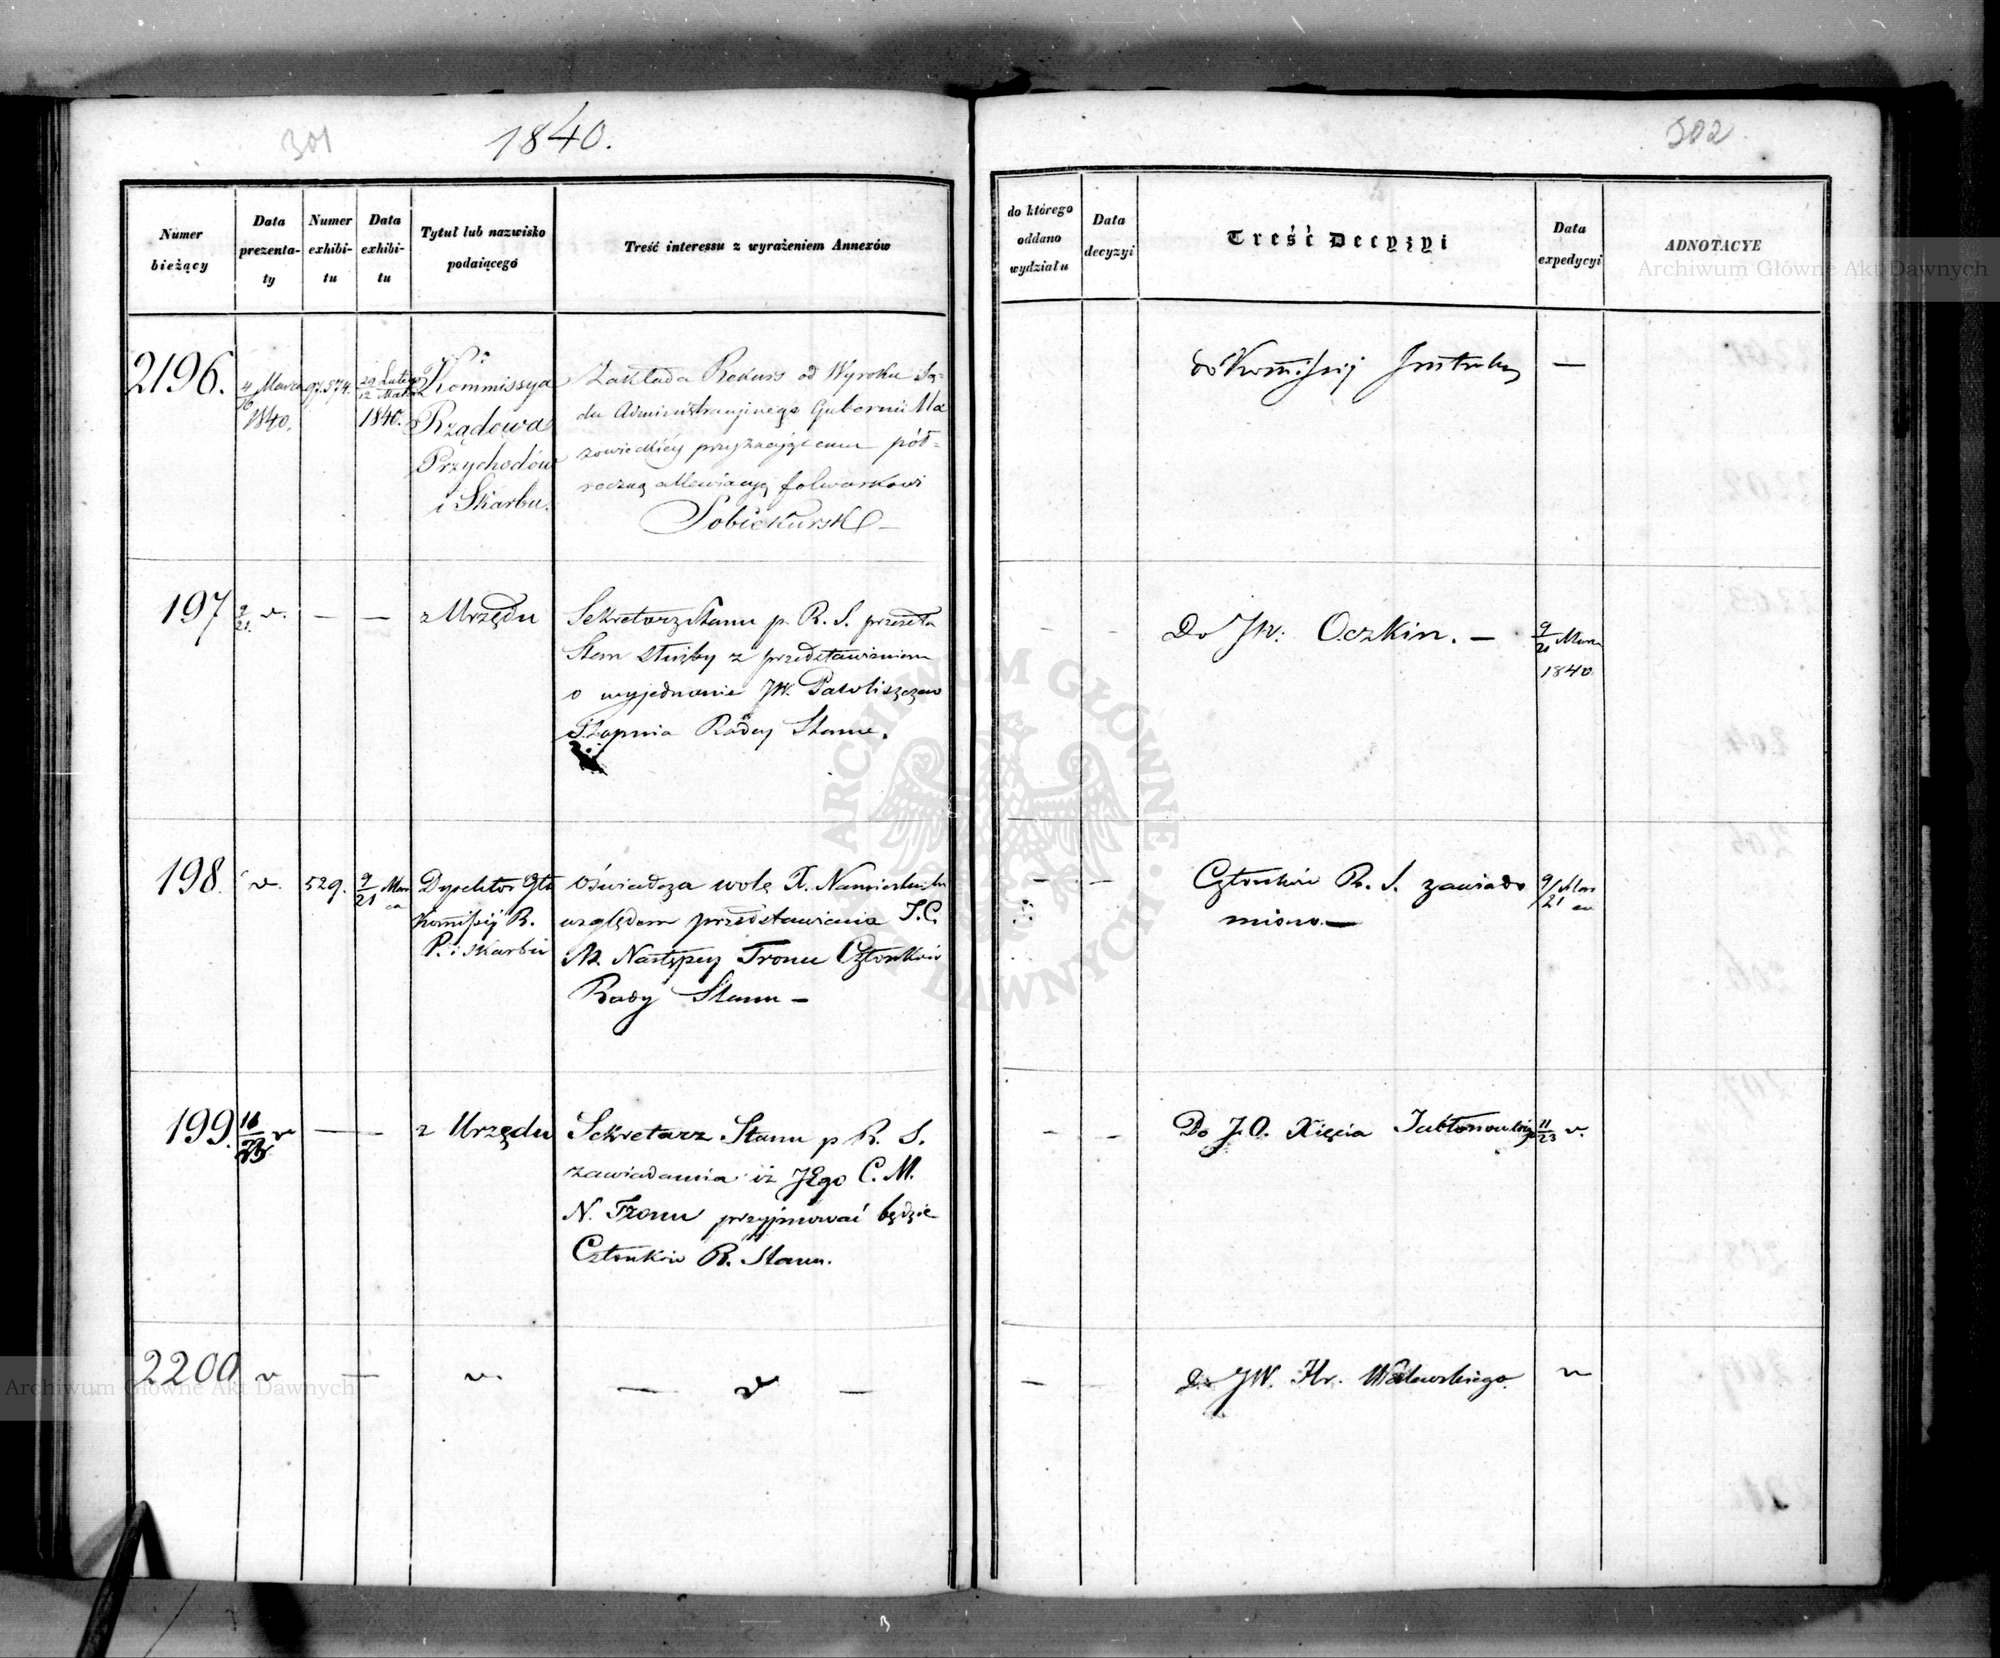 301
1840.
302
Numer bieżący
Data prezenta-ty
Numer exhibi-tu
Data exhibi-tu
Tytuł lub nazwisko podaiącego
Treść interessu z wyrażeniem Annexów
do którego oddano wydziału
Data decyzyi
Treść Decyzyi
Data expedycyi
ADNOTACYE
Archiwum Główne Akt Dawnych
2196.
4/16 Marca
1840.
97.574.
29 Lutego
12 Marca
1840.
Kommissya
Rządowa
Przychodów
i Skarbu.
Zakłada Rekurs od Wyroku Są-
du Administracyjnego Gubernii Ma
zowieckiéj przyznającemu pół-
roczną allewiacyą folwarkowi
Sobiekursk —
do Kommissij —
197
9/21. v. — —
z Urzędu
Sekretarz Stanu p. R. S. przesyła
Stan służby z przedstawieniem
o wyjednanie JW.
Stopnia Radcy Stanu.
— —
Do JW. Oczkin. —
9/21 Marca
1840
198.
v.
529.
9/21 Marca
Dyrektor Gł.
Komissij R.
P. i Skarbu
Oświadcza wolę X. Namiestnika
względem przedstawienia J. C.
M. Następcy Tronu Członków
Rady Stanu —
— —
Członków R. S. zawiado
miono. —
9/21 Marca
199.
v — —
z Urzędu
Sekretarz Stanu p R. S.
zawiadamia iż JEgo C. M.
N. Tronu przyjmować będzie
Członków R. Stanu.
— —
Do J.O. Xięcia Jabłonowskiego
11/23 v.
2200
v — v.
— v —
— —
Do JW. Hr. Walewskiego.
v
Archiwum Główne Akt Dawnych
ARCHIWUM GŁÓWNE AKT DAWNYCH